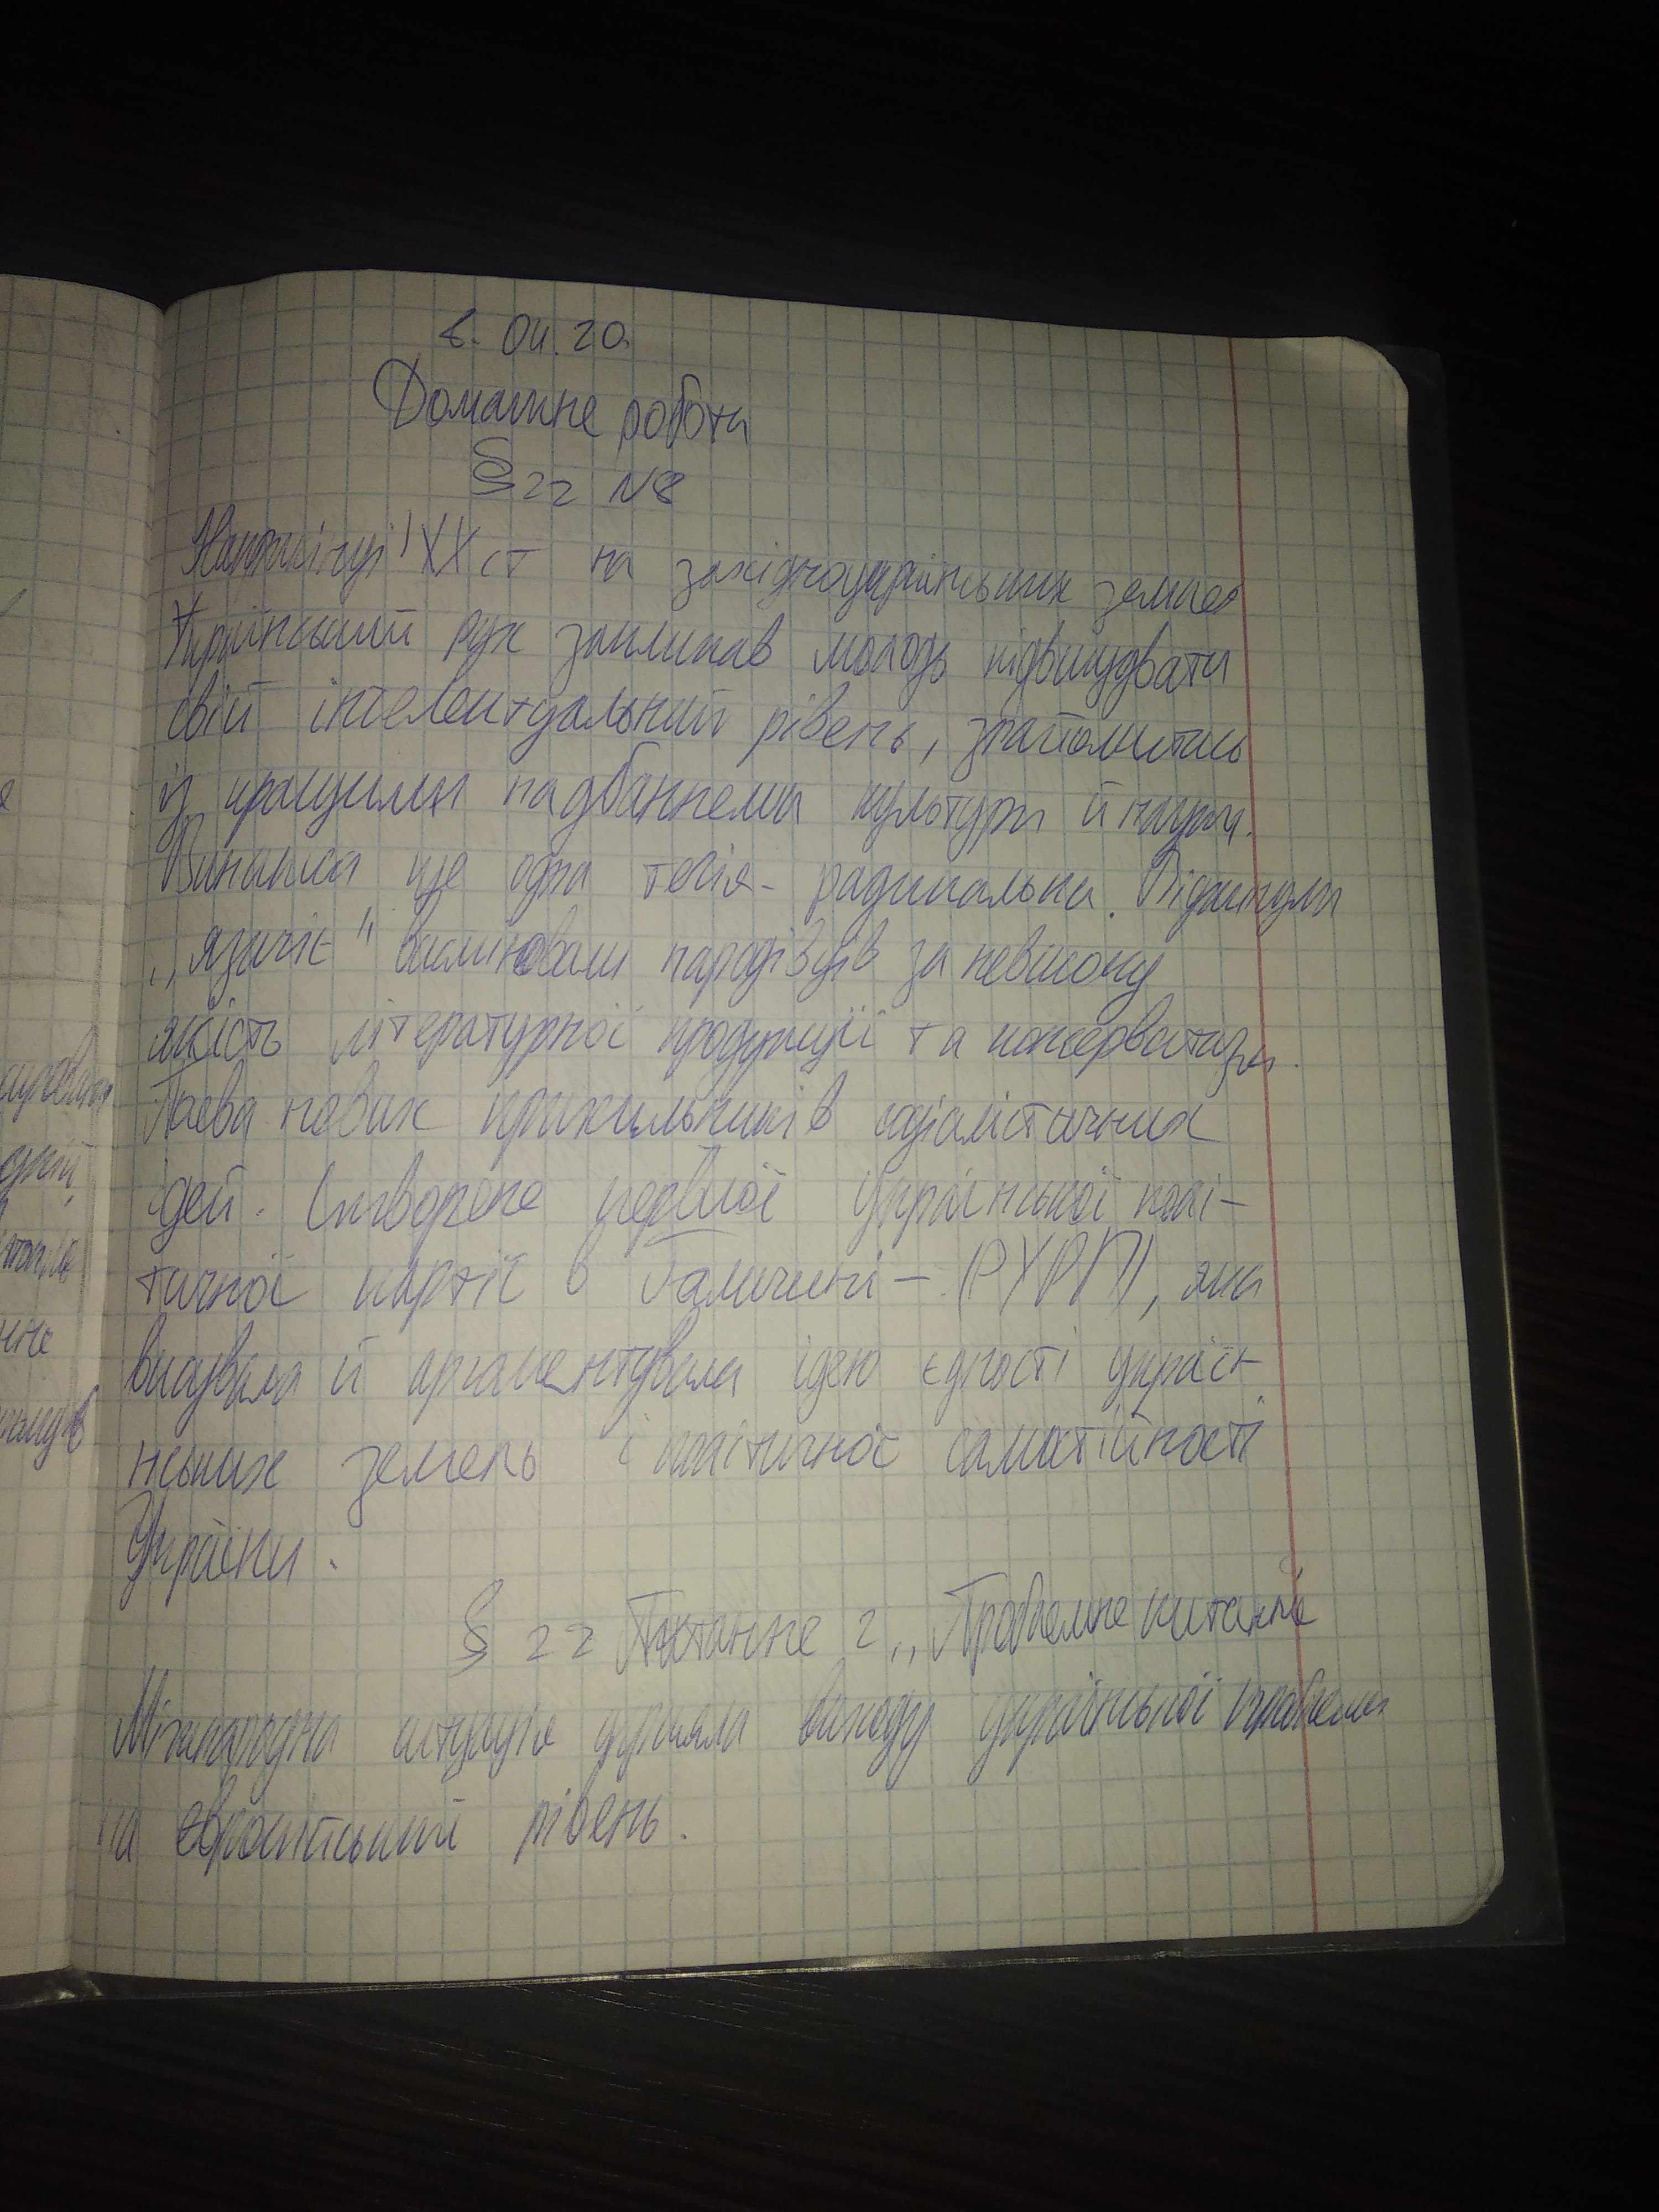 04.20.
Домашне робота
§22 N8
Наприкінці XX ст на західноукраїнських землях
Український рух закликав молодь підвищувати
свій інтелектуальний рівень, знайомитись
із кращими надбаннями культури й науки.
Виникла ще одна течія - радикальна. Відкинули
„язичіє" висміювали народівців за невисоку
якість літературної продукції та консерватизм.
Поява нових прихильників соціалістичних
ідей. Створене першої української полі-
тичної партії в Галичині - (РУРП), яка
висувала й аргументувала ідею єдності україн
нських земель і політичної самостійності
України.
§ 22 Питання 2 „Проблемне питання"
Міжнародна ситуація сприяла виходу української проблеми
на європейський рівень.